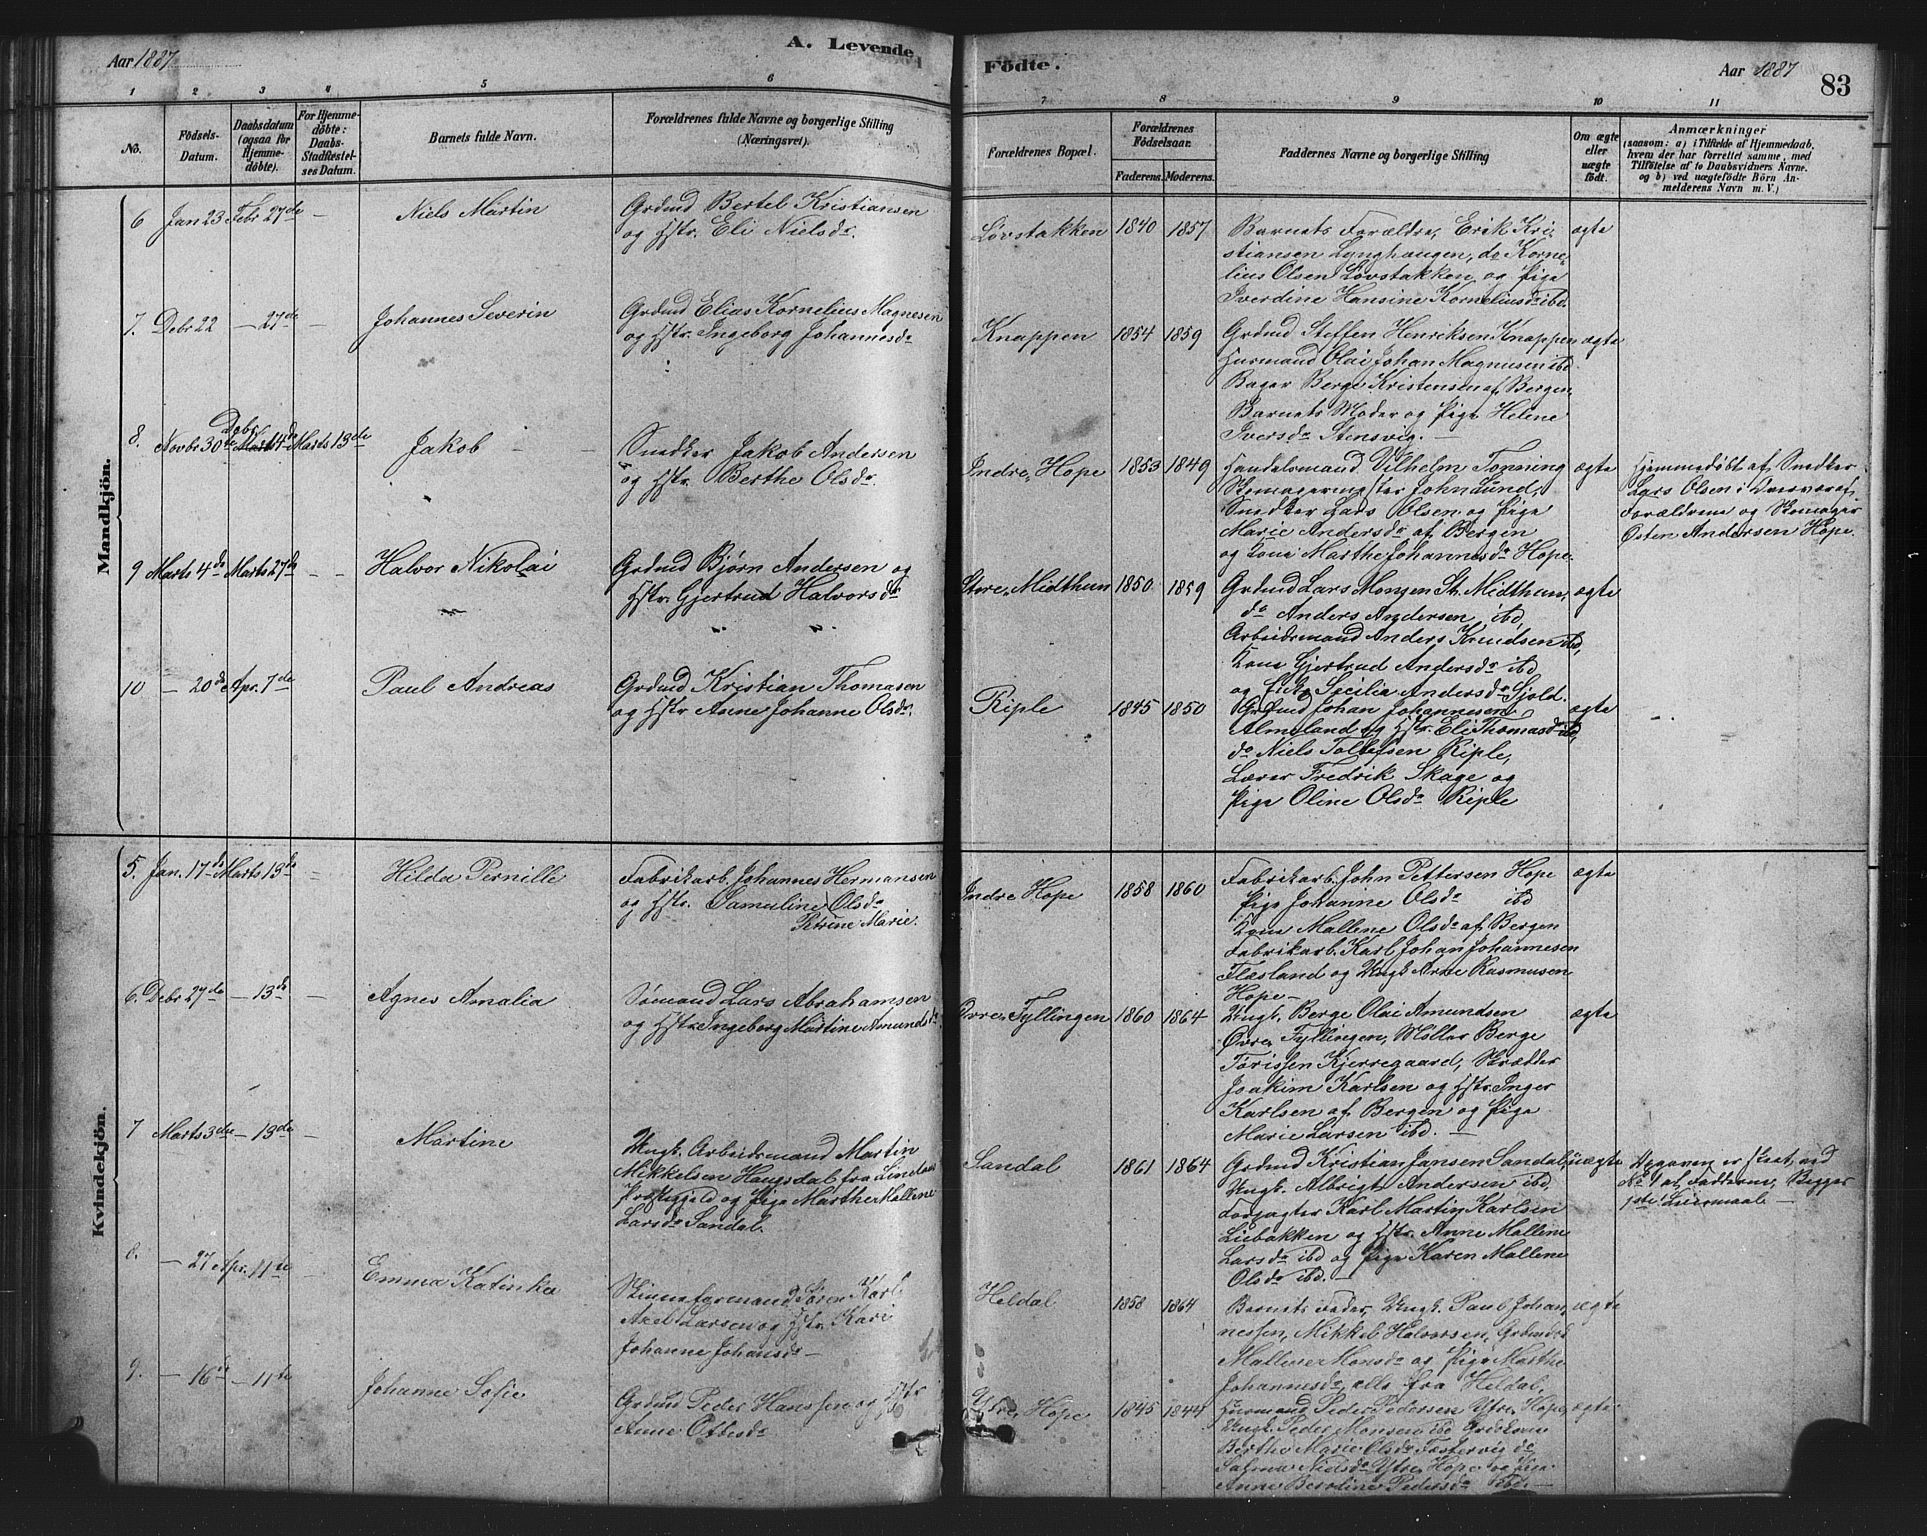 Aar 1887
A. Levende
Födte.
Aar 1887
83
1 2 3 4 5 6 7 8 9 10 11
No.
Födsels-
Datum.
Daabsdatum
(ogsaa for
Hjemme-
döbte).
For Hjemme-
döbte:
Daabs-
Stadfæstel-
ses Datum.
Barnets fulde Navn.
Forældrenes fulde Navne og borgerlige Stilling
(Næringsvei).
Forældrenes Bopæl.
Forældrenes
Födselsaar.
Faderens. Moderens.
Faddernes Navne og borgerlige Stilling
Om ægte
eller
uægte
födt.
Anmærkninger
(saasom: a) i Tilfælde af Hjemmedaab,
hvem der har forrettet samme, med
Tilföielse af to Daabsvidners Navne.
og b) ved uægtefödte Börn An-
melderens Navn m. V.)
Mandkjön.
6 Jan 23 Febr 27de —
Niels Martin
Grdmd Bertel Kristiansen
og Hstr. Eli Nielsdr.
Løvstakken
1840 1857
Barnets Forældre, Erik Kri-
stiansen Lynghaugen, do Korne-
lius Olsen Løvstakken og Pige
Iverdine Hansine Korneliusdr ibd.
ægte
7. Debr 22 — 27de —
Johannes Severin
Grdmd Elias Kornelius Magnesen
og Hstr. Ingeborg Johannesdr
Knappen
1854 1859
Grdmd Steffen Henriksen Knappen
Husmand Olai Johan Magnusen ibd.
Bager Berge Kristensen af Bergen,
Barnets Moder og Pige Helene
Iversdr Stensvig. —
ægte
8. Novbr 30te Debr 4de Marts 13de
Jakob
Snedker Jakob Andersen
og Hstr. Berthe Olsdr.
Indre Hope
1853 1849
Handelsmand Vilhelm Tonning
Skomagermester John Lund,
Snedker Lars Olsen og Pige
Marie Andersdr af Bergen
og Kone Marthe Johannesdr Hope.
ægte
Hjemmedøbt af Snedker
Lars Olsen i Overvær af
Forældrene og Skomager
Østen Andersen Hope.
9 Marts 4de Marts 27de —
Halvor Nikolai
Grdmd Bjørn Andersen og
Hstr. Gjertrud Halvorsdr
Store Midthun
1850 1859
Grdmd Lars Monsen St. Midthun,
do Anders Andersen ibd,
Arbeidsmand Anders Knudsen ibd,
Kone Gjertrud Andersdr ibd
og Enke Sicilia Andersdr Sjold.
ægte
10 — 20de Apr. 7de
Paul Andreas
Grdmd Kristian Thomasen
og Hstr Anne Johanne Olsdr.
Riple
1845 1850
Grdmd Johan Johannesen
Almeland og Hstr. Eli Thomasdr ibd,
do Niels Tollefsen Riple,
Lærer Fredrik Skage og
Pige Oline Olsdr Riple
ægte
Kvindekjön.
5. Jan. 17de Marts 13de —
Hilda Pernille
Fabrikarb. Johannes Hermansen
og Hstr. Samuline Olsdr
Petrine Marie.
Indre Hope
1858 1860
Fabrikarb. John Pettersen Hope
Pige Johanne Olsdr ibd
Kone Mallene Olsdr af Bergen
Fabrikarb. Karl Johan Johannesen
Flæsland og Ungk. Arne Rasmusen
Hope —
ægte
6. Debr 27de — 13de —
Agnes Amalia
Sømand Lars Abrahamsen
og Hstr. Ingeborg Martine Amundsdr
Øvre Fyllingen
1860 1864
Ungk. Berge Olai Amundsen
Øvre Fyllingen, Møller Berge
Torissen Kjerregaard, Skrædder
Joakim Karlsen og Hstr. Inger
Karlsen af Bergen og Pige
Marie Larsen ibd. —
ægte
7 Marts 3die — 13de —
Martine
Ungk. Arbeidsmand Martin
Mikkelsen Haugsdal fra Lindaas
Præstegjeld og Pige Marthe Mallene
Larsdr Sandal.
Sandal
1861 1864
Grdmd Kristian Jansen Sandal,
Ungk. Albrigt Andersen ibd,
Forpagter Karl Martin Karlsen
Liebakken og Hstr. Anne Mallene
Larsdr ibd og Pige Karen Mallene
Olsdr ibd. —
uægte
Opgaven er skeet ved
No 1 af Fadderne, Begges
1ste Leiermaal —
8. — 27 Apr. 11te —
Emma Katinka
Axel Larsen og Hstr. Kari
Johanne Johansdr —
Heldal
1858 1864
Barnets Fader, Ungk. Paul Johan-
nessen, Mikkel Halvorsen, Grdmdsk
Mallene Monsdr og Pige Marthe
Johannesdr, alle fra Heldal.
ægte
9. — 16de — 11te
Johanne Sofie
Grdmd Peder Hanssen og Hstr
Anne Ottesdr
Ytre Hope
1845 1844
Husmand Peder Pedersen Ytre Hope,
Ungk. Peder Monsen ibd Grdkone
Berthe Marie Olsdr Fostervig do
Salmea Nielsdr Ytre Hope og Pige
Anne Beroline Pedersdr ibd. —
ægte